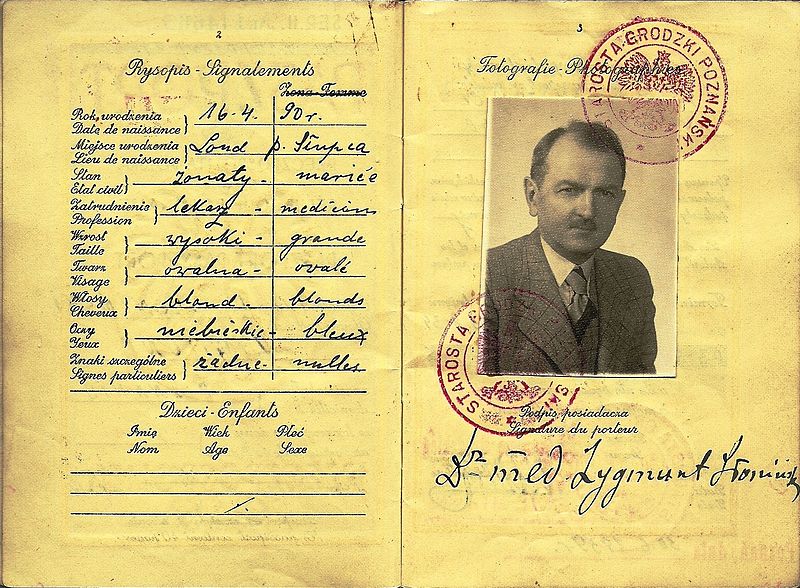 2
Rysopis - Signalements
Żona-Femme
Rok urodzenia
Date de naissance
16-4. 90 r.
Miejsce urodzenia
Lieu de naissance
Lond p. Słupca
Stan
Etat civil
żonaty - mariée
Zatrudnienie
Profession
lekarz - medicins
Wzrost
Taille
wysoki - grande
Twarz
Visage
owalna - ovale
Włosy
Cheveux
blond - blonds
Oczy
Yeux
niebieskie - bleux
Znaki szczególne
Signes particuliers
żadne - nulles
Dzieci - Enfants
Imię Wiek Płeć
Nom Age Sexe
3
Fotografie - Photographies
STAROSTA GRODZKI POZNAŃSKI
STAROSTA
SKI
Podpis posiadacza
Signature du porteur
Dr med. Zygmunt